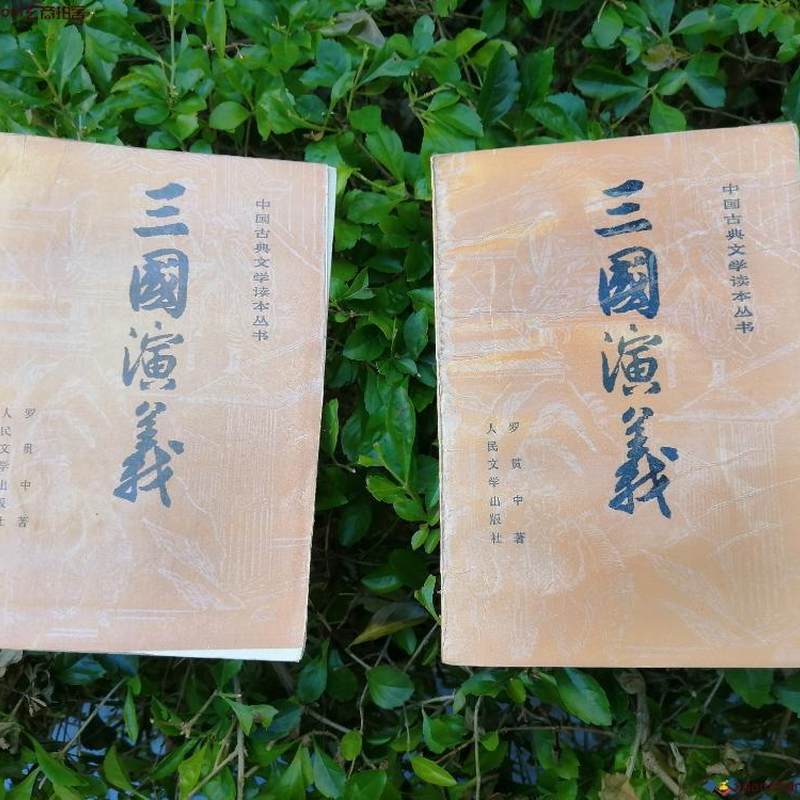 中国古典文学读本丛书
三國演義
罗贯中 著
人民文学出版社
中国古典文学读本丛书
三國演義
罗贯中 著
人民文学出版社